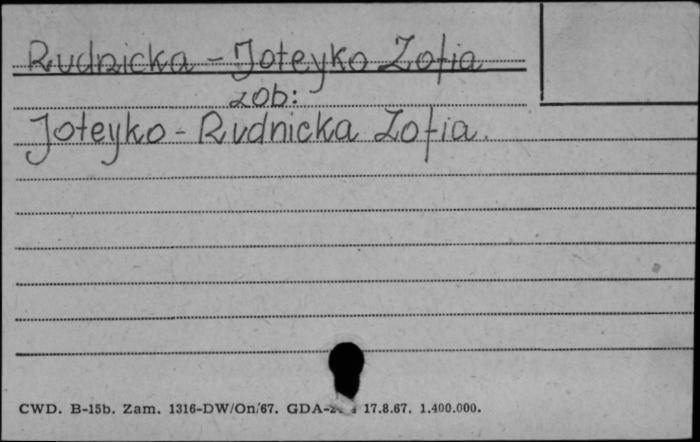 Rudnicka - Joteyko Zofia
zob:
Joteyko - Rudnicka Zofia.
CWD. B-15b. Zam. 1316-DW/On/67. 17.8.67. 1.400.000.